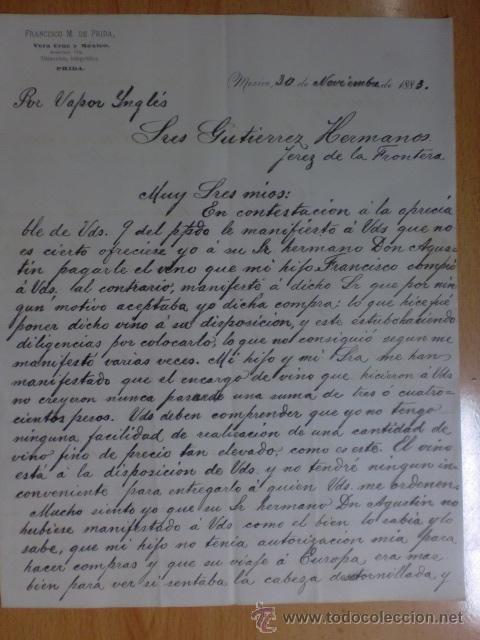 FRANCISCO M. DE PRIDA,
Vera Cruz y México.
Dirección telegráfica
PRIDA.
México, 30 de Noviembre de 1883.
Por Vapor Inglés
Sres Gutierrez Hermanos
Jerez de la Frontera
Muy Sres mios:
En contestacion á la aprecia
ble de Vds. 9 del ppdo le manifiestó á Vds que no
es cierto ofreciese yo á su Sr hermano Dón Agus
tin pagarle el vino que mi hijo Francisco compró
á Vds. al contrario, manifestó á dicho Sr que por nin
gun motivo aceptaba yo dicha compra; lo que hice fué
poner dicho vino a su disposicion, y este estubo haciendo
diligencias por colocarlo, lo que no consiguió segun me
manifestó varias veces. Mi hijo y mi Sra me han
manifestado que el encargo de vino que hicieron á Vds
no creyeron nunca pasase de una suma de tres ó cuatro-
cientos pesos. Vds deben comprender que yo no tengo
ninguna facilidad de realizacion de una cantidad de
vino fino de precio tan elevado, como es este. El vino
está á la disposicion de Vds. y no tendré ningun in-
conveniente para entregarlo á quien Vds. me ordenen.
Mucho siento yo que su Sr hermano Dn Agustin no
hubiese manifestado á Vds como el bien lo sabia y lo
sabe, que mi hijo no tenia autorizacion mia para
hacer compras y que su viaje á Europa, era mas
bien para ver si sentaba la cabeza destornillada, y
todocoleccion.net